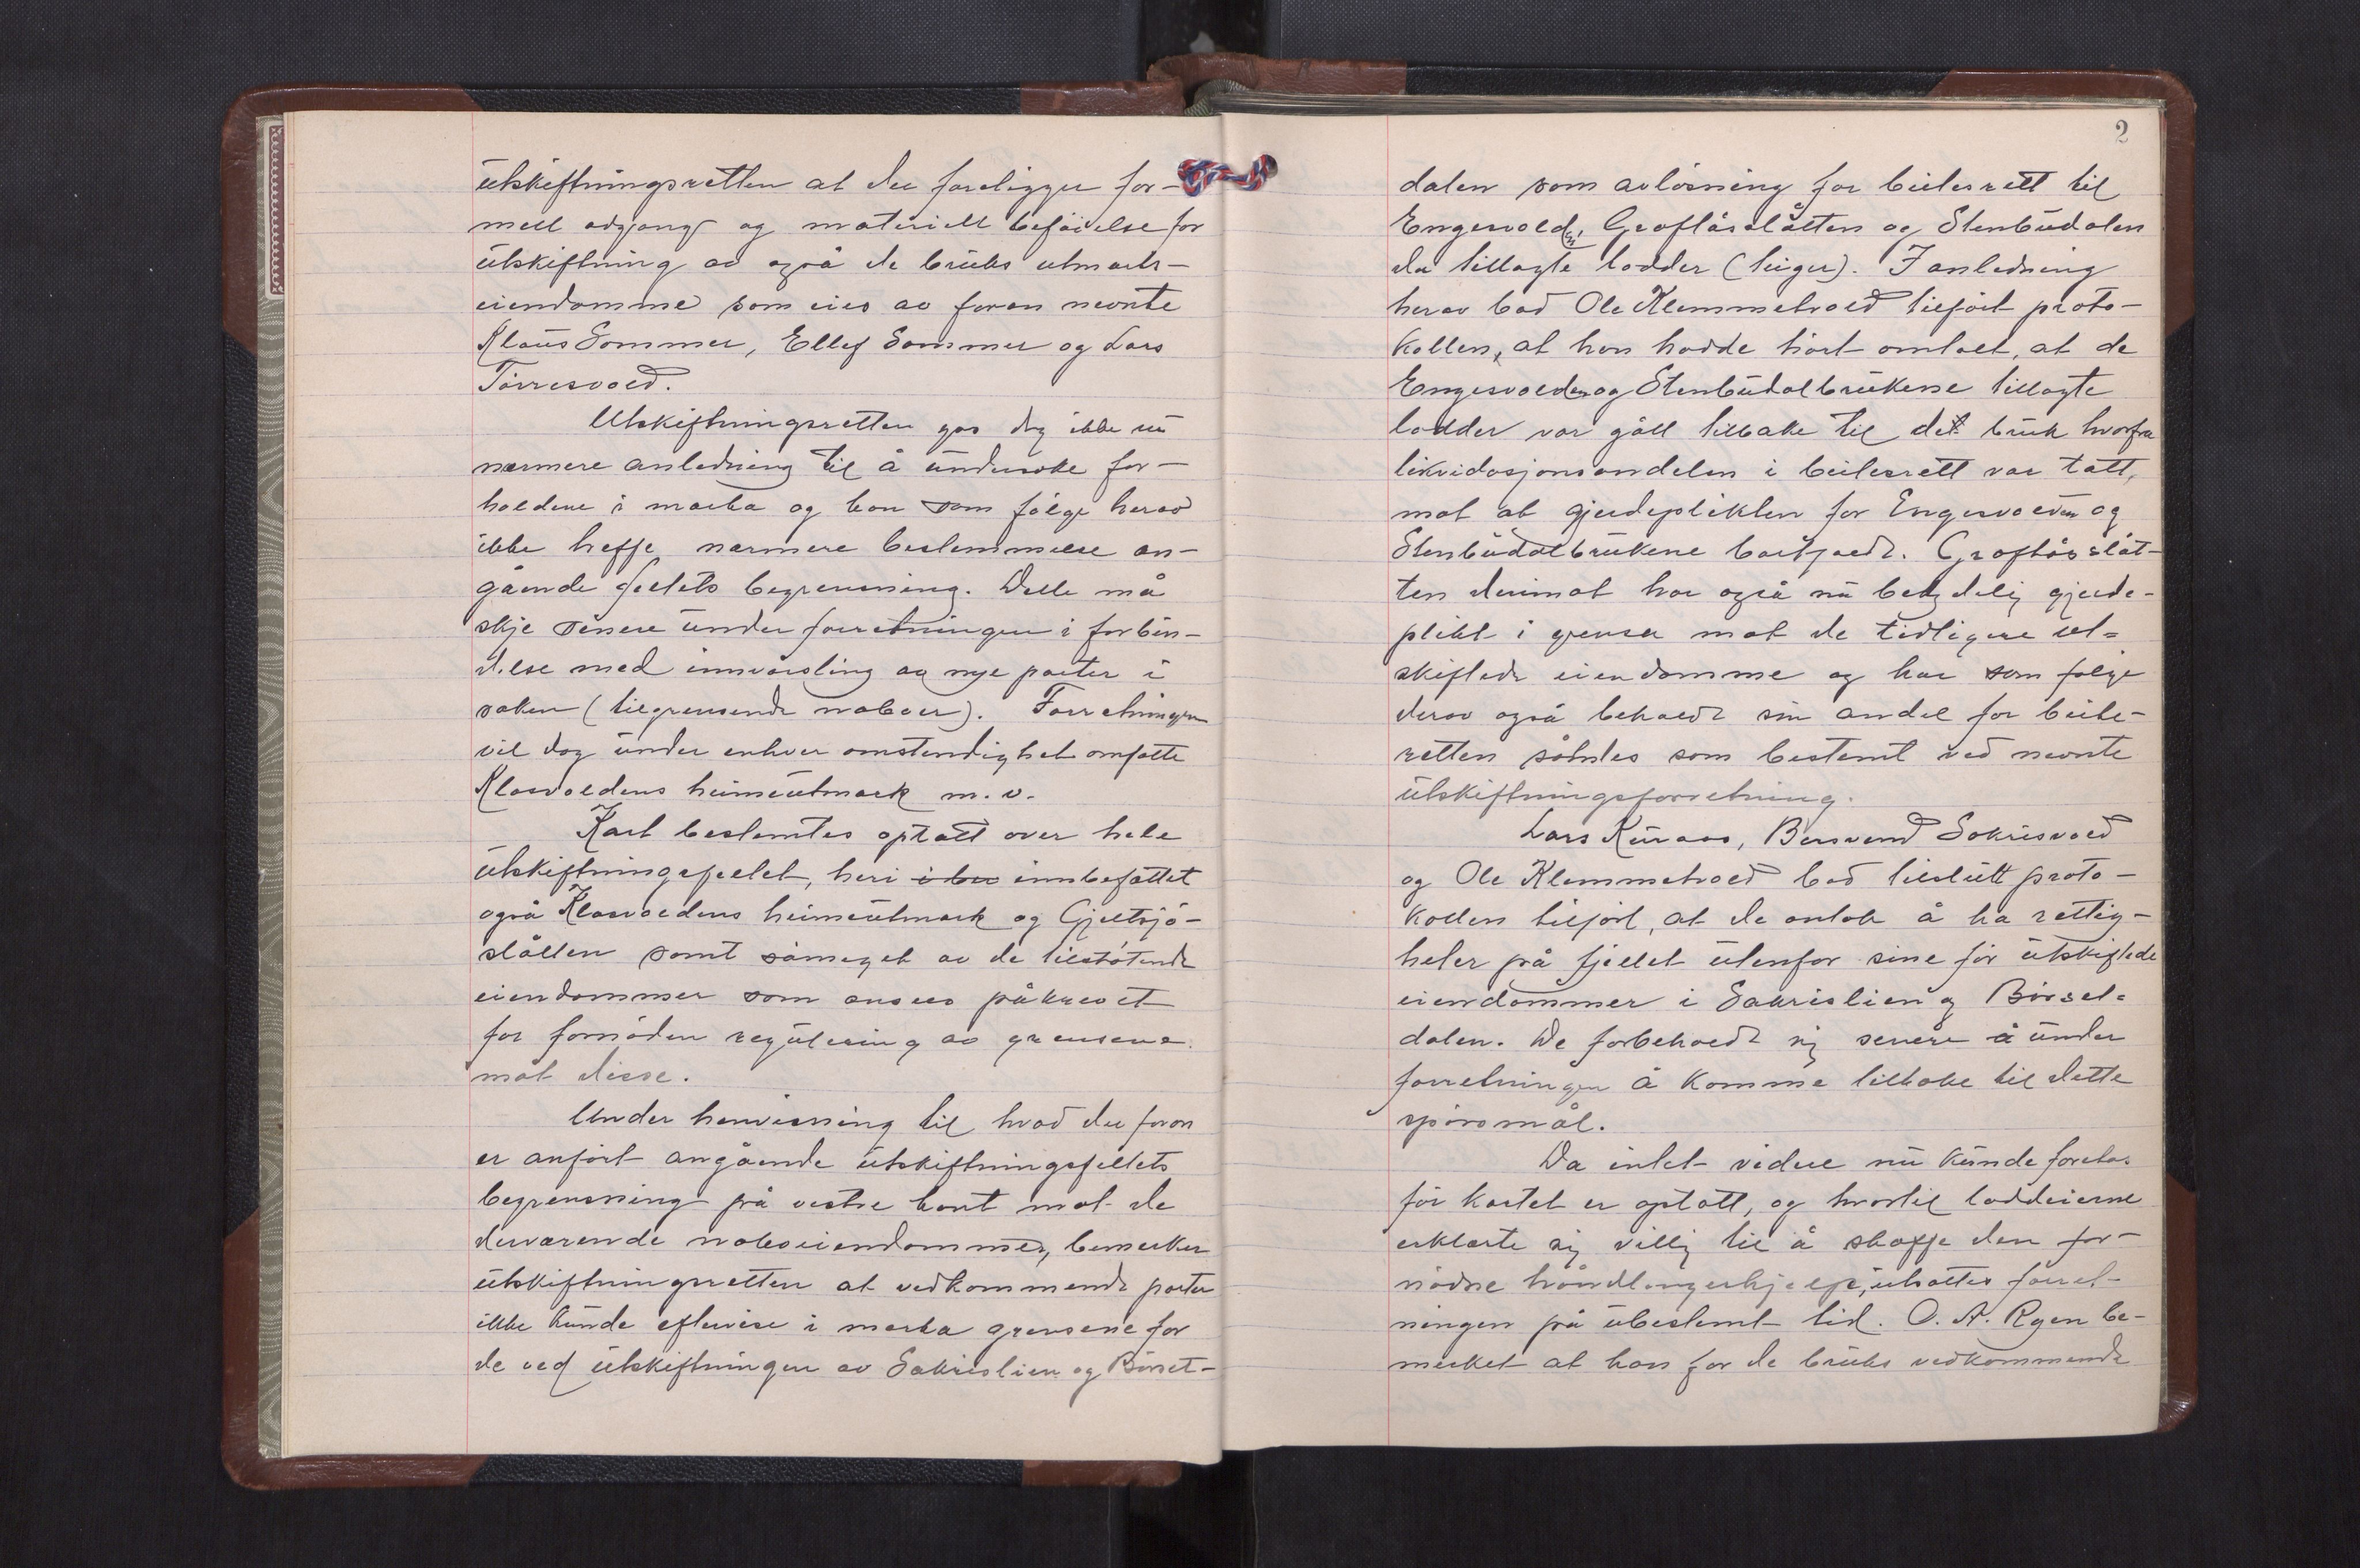 utskiftningsretten at der foreligger for-
mell adgang og materiell beføielse for
utskiftning av også de bruks utmarks-
eiendomme som eies av foran nevnte
Klaus Sommer, Ellef Sommer og Lars
Tørresvold.
Utskiftningsretten gas dog ikke nu
nærmere anledning til å undersøke for-
holdene i marka og kan som følge herav
ikke treffe nærmere bestemmelse an-
gående feltets begrensning. Dette må
skje senere under forretningen i forbin-
delse med innvarsling av nye parter i
saken (tilgrensende naboer). Forretningen
vil dog under enhver omstendighet omfatte
Klasvoldens heimeutmark m. v.
Kart bestemtes optatt over hele
utskiftningsfeltet, heri i ber innbefattet
også Klasvoldens heimeutmark og Gjeltsjø-
slåtten samt såmeget av de tilstøtende
eiendommer som ansees påkrevet
for fornøden regulering av grensene
mot disse.
Under henvisning til hvad der foran
er anført angående utskiftningsfeltets
begrensning på vestre kant mot de
derværende naboeiendommer, bemerker
utskiftningsretten at vedkommende parter
ikke kunde eftervise i marka grensene for
de ved utskiftningen av Sakrislien og Børset-
2
dalen som avløsning for beitesrett til
Engesvolden, Grøftåsslåtten og Stenbudalen
da tillagte lodder (teiger). I anledning
herav bad Ole Klemmetvold tilført proto-
kollen, at han hadde hørt omtalt, at de
Engesvolden og Stenbudalbrukene tillagte
lodder var gått tilbake til det bruk hvorfra
likvidasjonsandelen i beitesrett var tatt,
mot at gjerdeplikten for Engesvolden og
Stenbudalbrukene bortfaldt. Grøftåsslåt-
ten derimot har også nu betydelig gjerde-
plikt i grensen mot de tidligere ut-
skiftede eiendomme og har som følge
derav også beholdt sin andel for beite-
retten således som bestemt ved nevnte
utskiftningsforretning.
Lars Kuraas, Bersvend Sakrisvold
og Ole Klemmetvold bad tilslutt proto-
kollen tilført, at de antok å ha rettig-
heter på fjellet utenfor sine før utskiftede
eiendommer i Sakrislien og Børset-
dalen. De forbeholdt sig senere å under
forretningen å komme tilbake til dette
spørsmål.
Da intet videre nu kunde foretas
før kartet er optatt, og hvortil loddeierne
erklærte sig villig til å skaffe den for-
nødne håndlangerhjelp, utsattes forret-
ningen på ubestemt tid. O. A. Ryen be-
merket at han for de bruks vedkommende